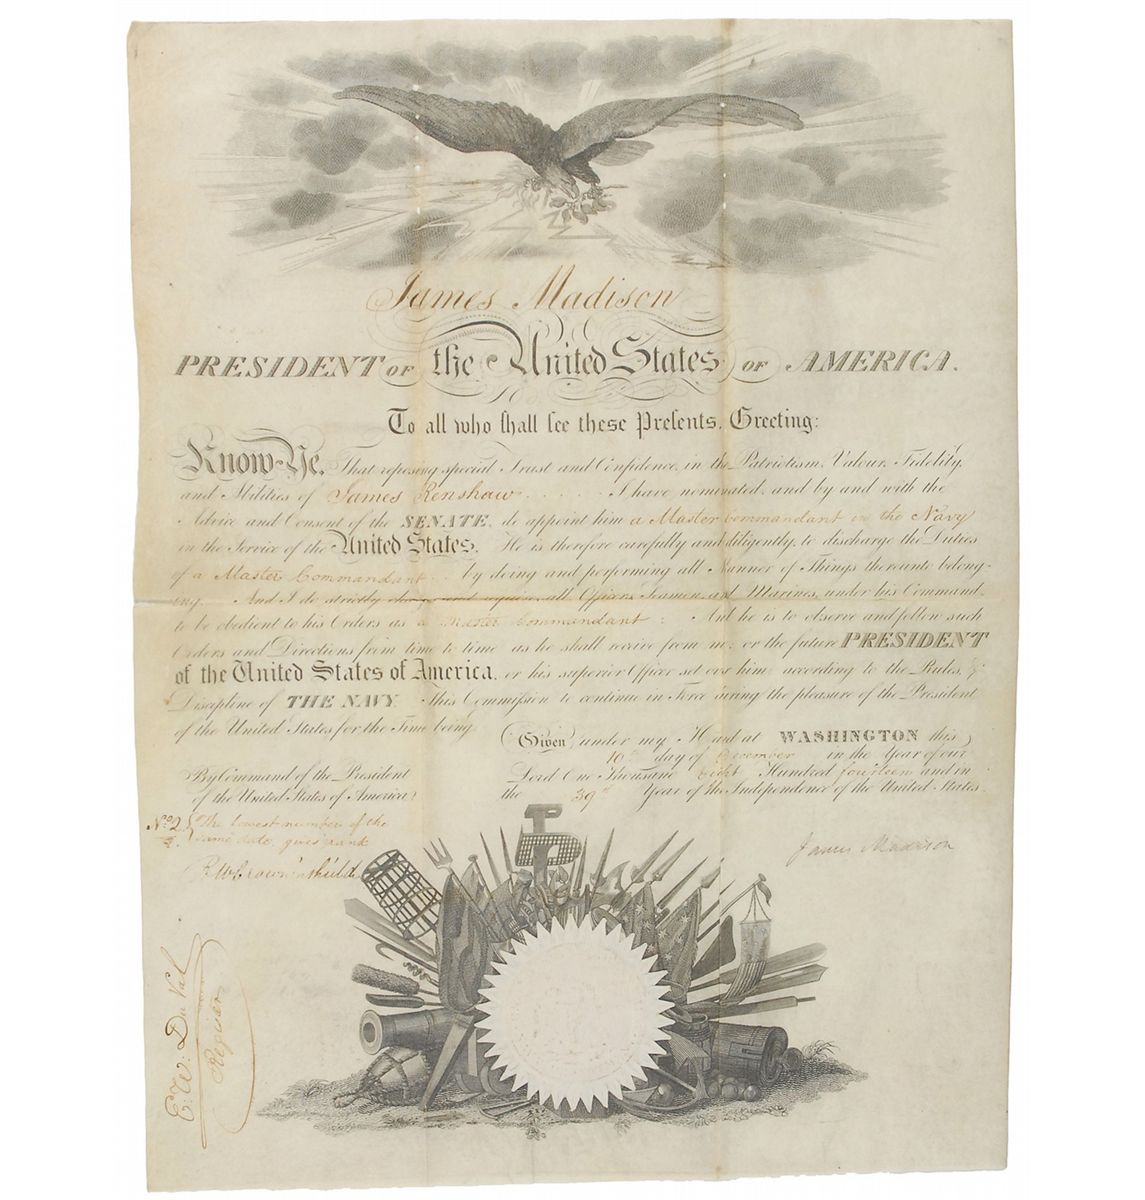 James Madison
PRESIDENT OF the United States OF AMERICA.
To all who ſhall ſee these Preſents, Greeting:
Know Ye, That reposing special Trust and Confidence in the Patriotism, Valour, Fidelity,
and Abilities of James Renshaw . . . . . . I have nominated, and by and with the
Advice and Consent of the SENATE, do appoint him a Master Commandant in the Navy
in the Service of the United States. He is therefore carefully and diligently to discharge the Duties
of a Master Commandant . . by doing and performing all Manner of Things thereunto belong-
ing. And I do strictly charge and require all Officers, Seamen and Marines, under his Command,
to be obedient to his Orders as a Master Commandant : And he is to observe and follow such
Orders and Directions from time to time as he shall receive from me, or the future PRESIDENT
of the United States of America, or his superior Officer set over him, according to the Rules &
Discipline of THE NAVY. This Commission to continue in Force during the pleasure of the President
of the United States for the Time being.
Given under my Hand at WASHINGTON this
10th day of December in the Year of our
Lord One Thousand eight Hundred fourteen and in
the 39th Year of the Independence of the United States.
By Command of the President
of the United States of America:
No 2 The lowest number of the
same date, gives rank
B W Crowninshield
James Madison
E: W: Du Val
Register